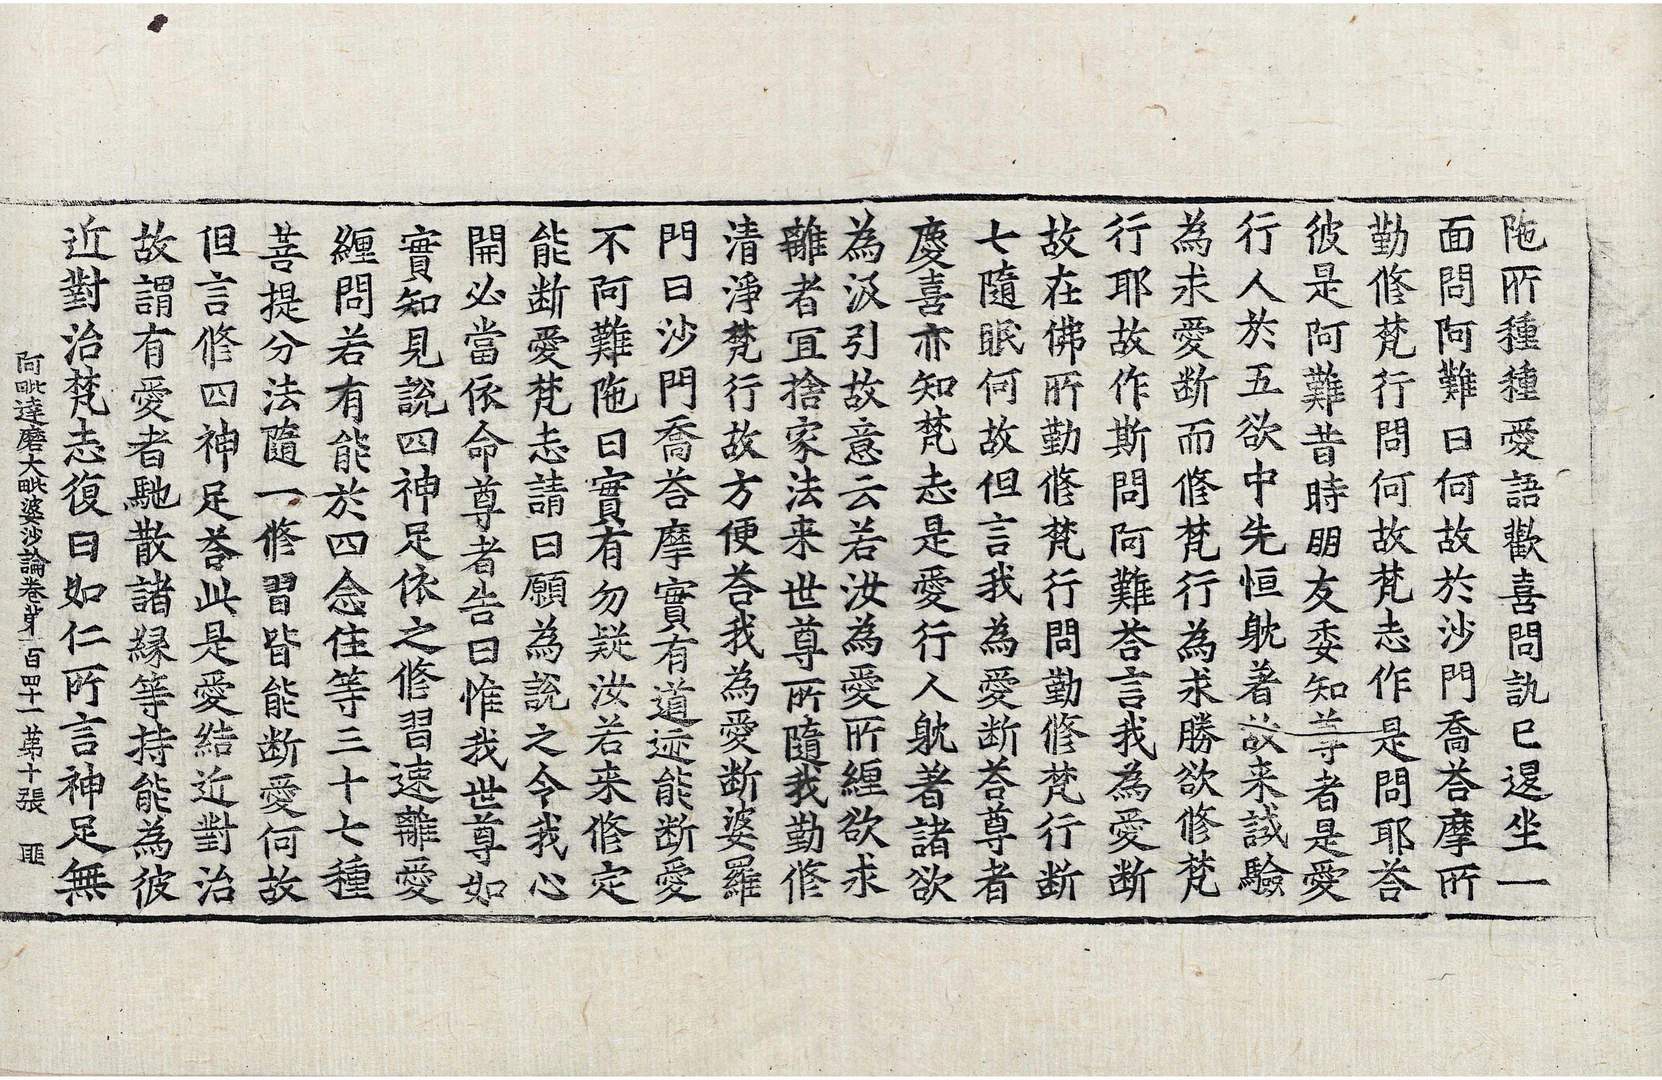 陁所種種愛語歡喜問訊已退坐一
面問阿難曰何故於沙門喬荅摩所
勤修梵行問何故梵志作是問耶荅
彼是阿難昔時朋友委知尊者是愛
行人於五欲中先恒躭著故来試驗
為求愛断而修梵行為求勝欲修梵
行耶故作斯問阿難荅言我為愛断
故在佛所勤修梵行問勤修梵行断
七隨眠何故但言我為愛断荅尊者
慶喜亦知梵志是愛行人躭著諸欲
為汲引故意云若汝為愛所纏欲求
離者冝捨家法来世尊所隨我勤修
清淨梵行故方便荅我為愛断婆羅
門曰沙門喬荅摩實有道迹能断愛
不阿難陁曰實有勿疑汝若来修定
能断愛梵志請曰願為說之令我心
開必當依命尊者告曰惟我世尊如
實知見說四神足依之修習速離愛
纏問若有能於四念住等三十七種
菩提分法隨一修習皆能断愛何故
但言修四神足荅此是愛結近對治
故謂有愛者馳散諸縁等持能為彼
近對治梵志復曰如仁所言神足無
阿毗達磨大毗婆沙論卷苐一百四十一 苐十張 匪